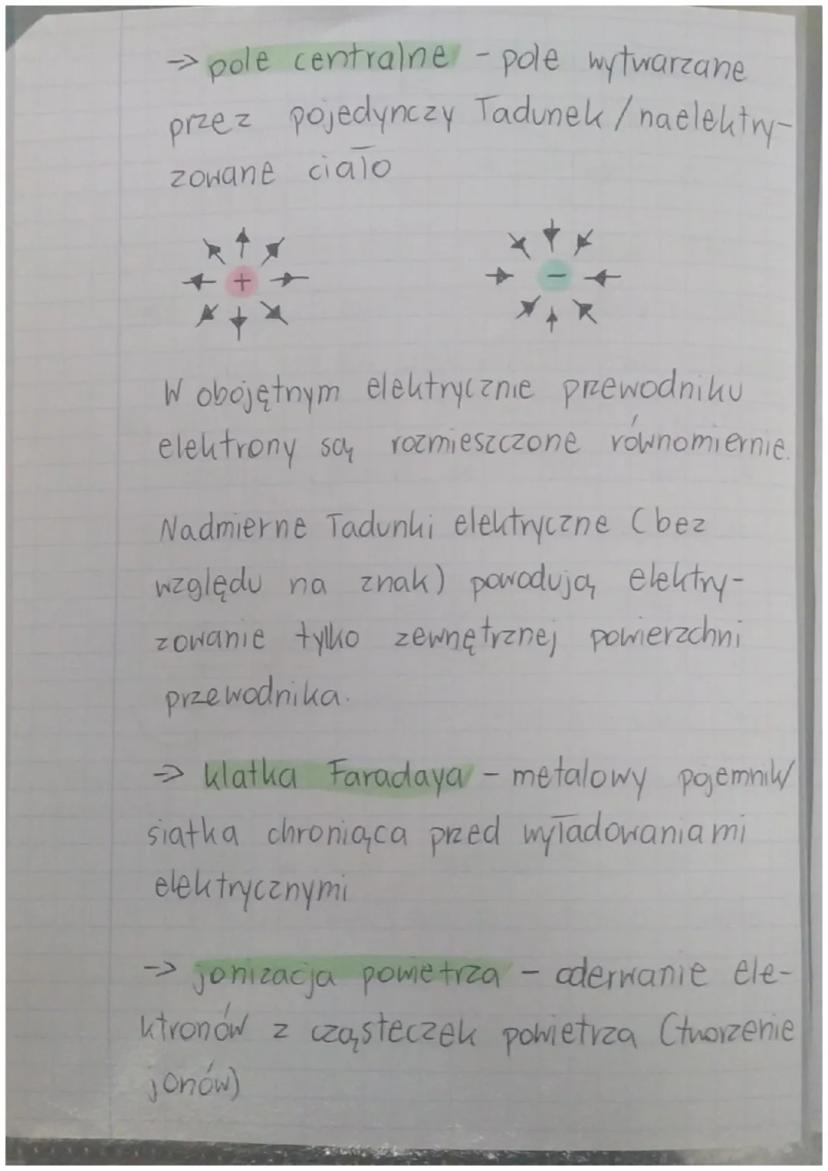 → pole centralne - pole wytwarzane
przez pojedynczy ładunek / naelektry-
zowane ciało
+
-
W obojętnym elektrycznie przewodniku
elektrony są rozmieszczone równomiernie.
Nadmierne ładunki elektryczne (bez
względu na znak) powodują elektry-
zowanie tylko zewnętrznej powierzchni
przewodnika.
→ klatka Faradaya - metalowy pojemnik/
siatka chroniąca przed wyładowaniami
elektrycznymi
→ jonizacja powietrza - oderwanie ele-
ktronów z cząsteczek powietrza (tworzenie
jonów)